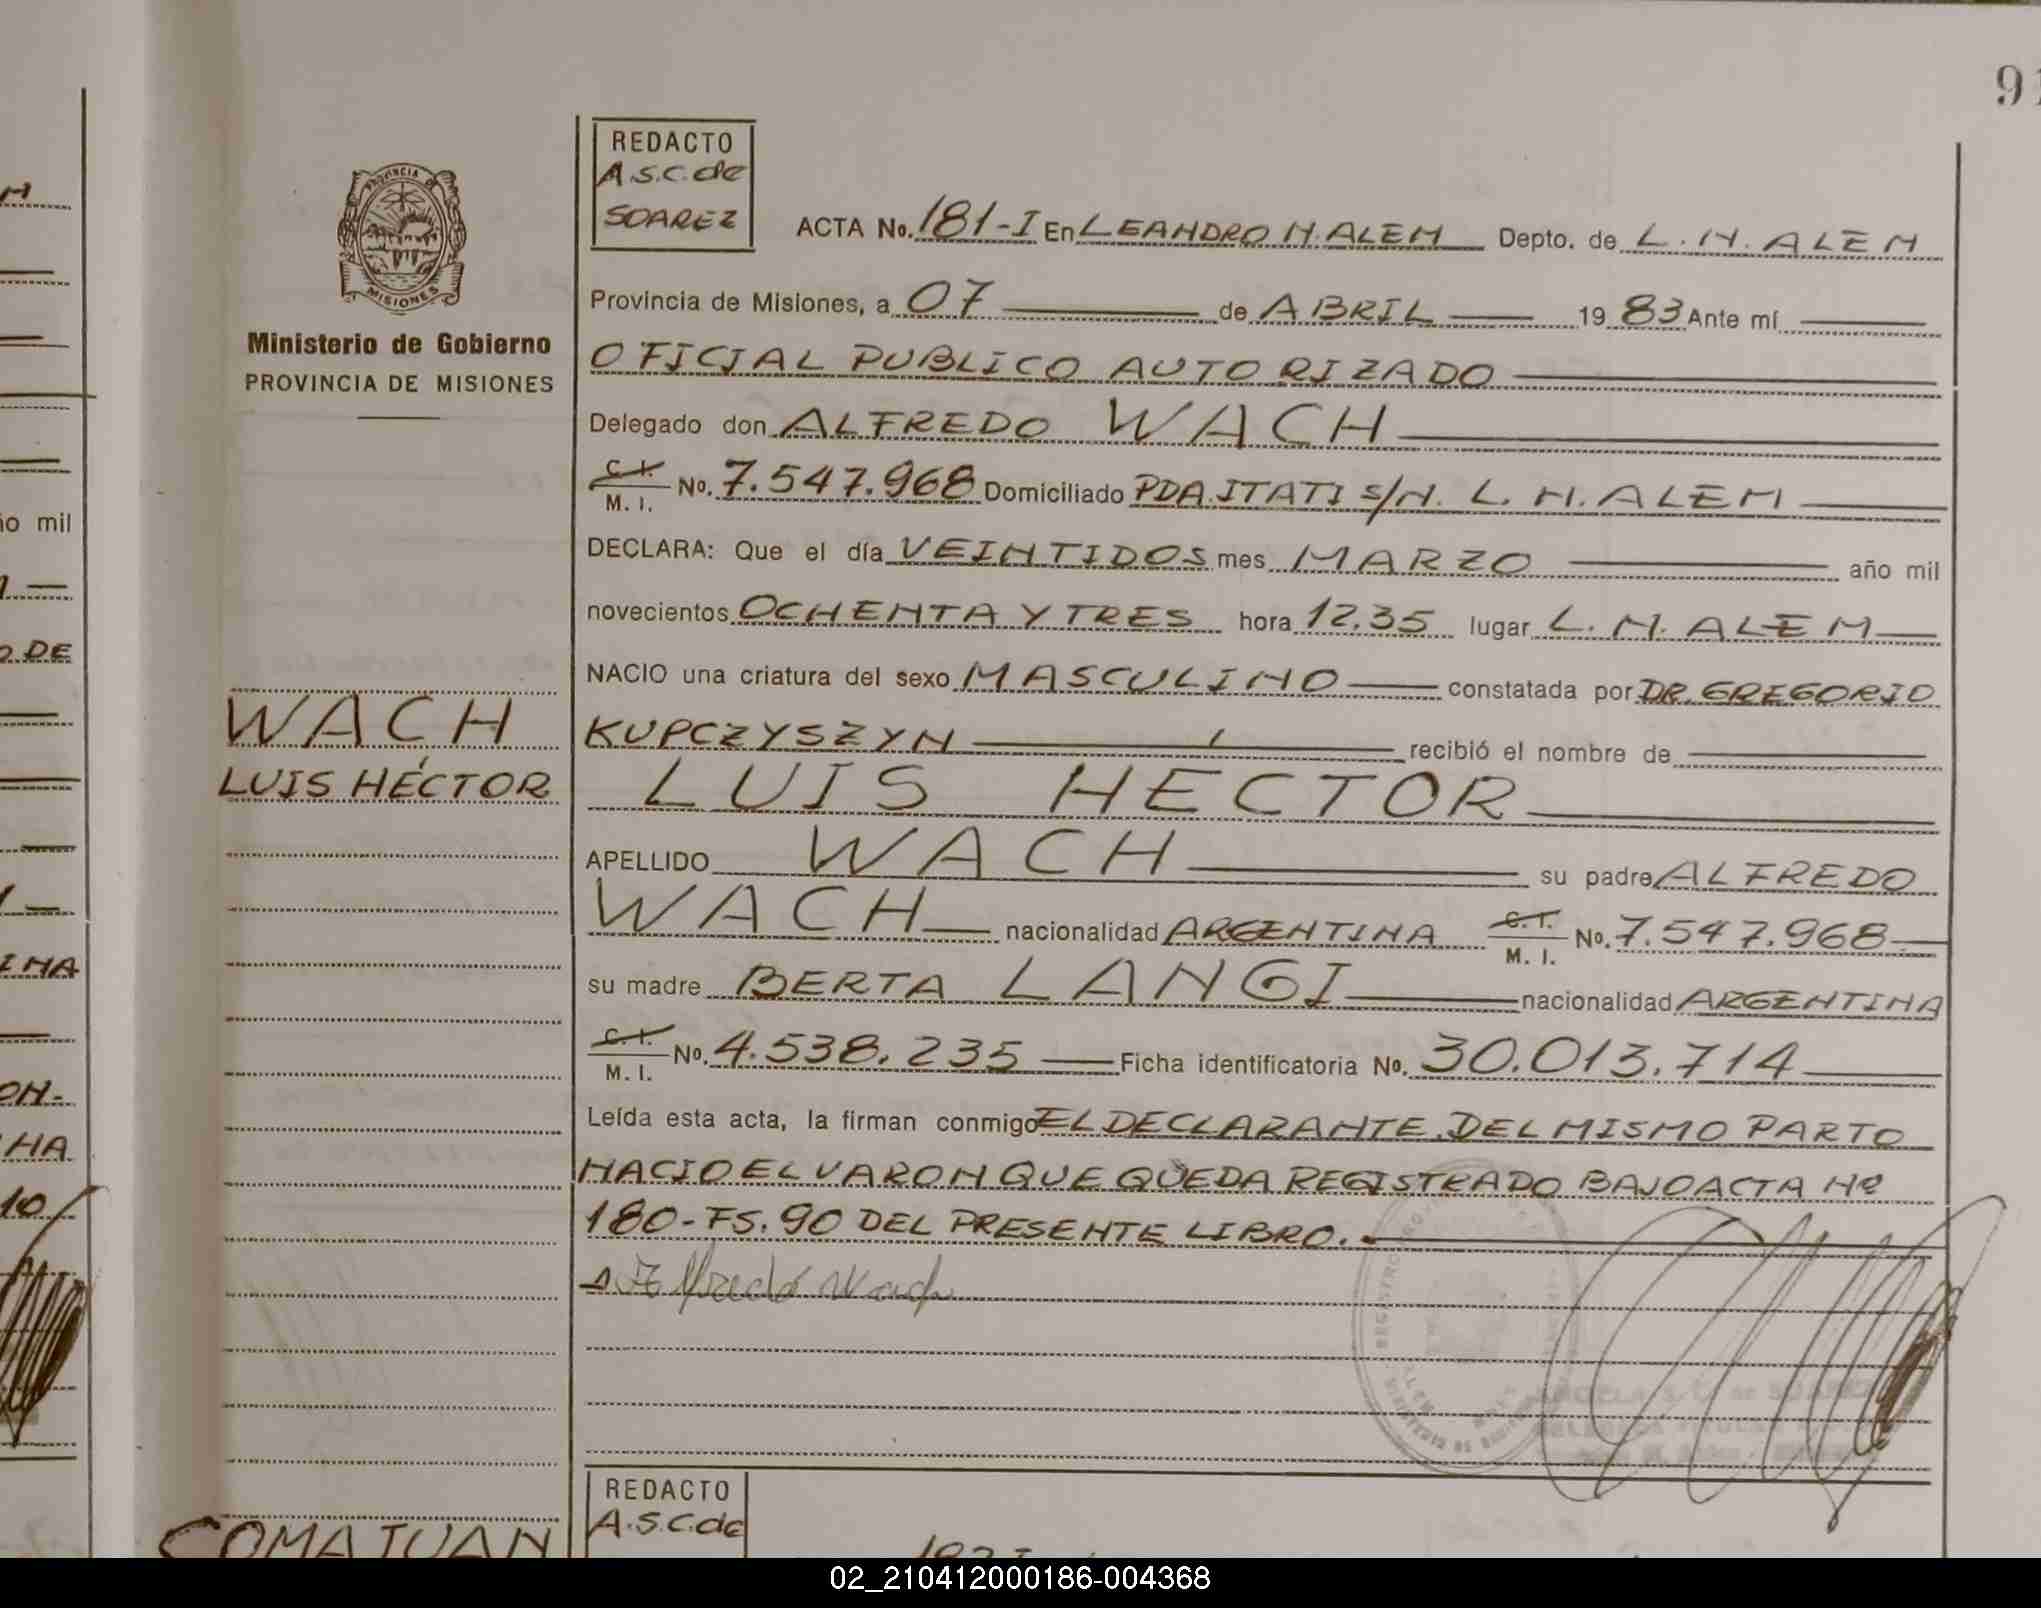 91
REDACTO
A.S.C.de
SOAREZ
ACTA No. 181-I En LEANDRO N. ALEM Depto. de L. N. ALEM
PROVINCIA DE
MISIONES
Ministerio de Gobierno
PROVINCIA DE MISIONES
Provincia de Misiones, a 07 de ABRIL 19 83 Ante mí
OFICIAL PUBLICO AUTORIZADO
Delegado don ALFREDO WACH
C. I. M. I. No. 7.547.968 Domiciliado PDA. ITATI S/N. L. N. ALEM
DECLARA: Que el día VEINTIDOS mes MARZO año mil
novecientos OCHENTA Y TRES hora 12.35 lugar L. N. ALEM
NACIO una criatura del sexo MASCULINO constatada por DR. GREGORIO
KUPCZYSZYN recibió el nombre de
WACH
LUIS HÉCTOR
LUIS HECTOR
APELLIDO WACH su padre ALFREDO
WACH nacionalidad ARGENTINA C. I. M. I. No. 7.547.968
su madre BERTA LANGI nacionalidad ARGENTINA
C. I. M. I. No. 4.538.235 Ficha identificatoria No. 30.013.714
Leída esta acta, la firman conmigo EL DECLARANTE. DEL MISMO PARTO
NACIO EL VARON QUE QUEDA REGISTRADO BAJO ACTA Nº
180-FS. 90 DEL PRESENTE LIBRO.
Alfredo Wach
ANGELA S. C. de SUAREZ
REDACTO
A.S.C.de
SOMA JUAN
02_210412000186-004368